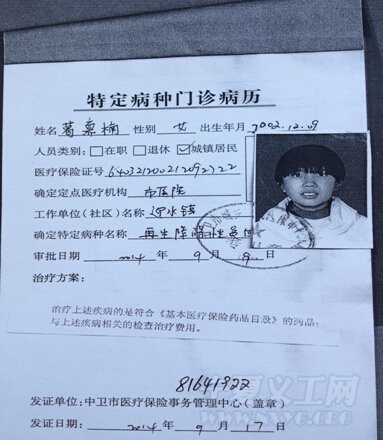 特定病种门诊病历
姓名 葛熏楠 性别 女 出生年月 2002.12.09
人员类别：□在职 □退休 ☑城镇居民
医疗保险证号
确定定点医疗机构 市医院
工作单位(社区)名称
确定特定病种名称 再生障碍性贫血
审批日期 2014 年 9 月 日
治疗方案：
治疗上述疾病的是符合《基本医疗保险药品目录》的药品；
与上述疾病相关的检查治疗费用。
81641922
发证单位：中卫市医疗保险事务管理中心（盖章）
发证日期： 2014 年 9 月 17 日
义工网